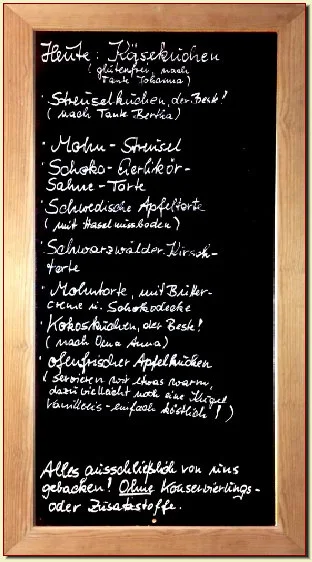 Heute: Käsekuchen
(glutenfrei, nach
Tante Johanna)
· Streuselkuchen, der Beste!
(nach Tante Bertha)
· Mohn-Streusel
· Schoko-Eierlikör-
Sahne-Torte
· Schwedische Apfeltorte
(mit Haselnussboden)
· Schwarzwälder-Kirsch-
torte
· Mohntorte, mit Butter-
creme u. Schokodecke
· Kokoskuchen, der Beste!
(nach Oma Anna)
· ofenfrischer Apfelkuchen
(servieren wir etwas warm,
dazu vielleicht noch eine Kugel
Vanilleeis - einfach köstlich!)
Alles ausschließlich von uns
gebacken! Ohne Konservierungs-
oder Zusatzstoffe.